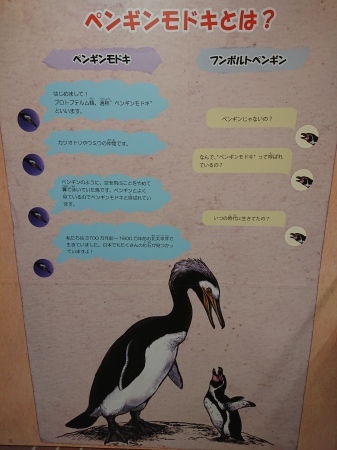 ペンギンモドキとは？
ペンギンモドキ
フンボルトペンギン
はじめまして！
プロトプテルム類、通称"ペンギンモドキ"
といいます。
ペンギンじゃないの？
カツオドリやウミウの仲間です。
なんで、"ペンギンモドキ"って呼ばれ
ているの？
ペンギンのように、空を飛ぶことをやめて
翼で泳いでいた鳥です。ペンギンとよく
似ているのでペンギンモドキと呼ばれてい
ます。
いつの時代に生きてたの？
私たちは3700万年前～1600万年前の北太平洋で
生きていました。日本でもたくさんの化石が見つかっ
ていますよ！